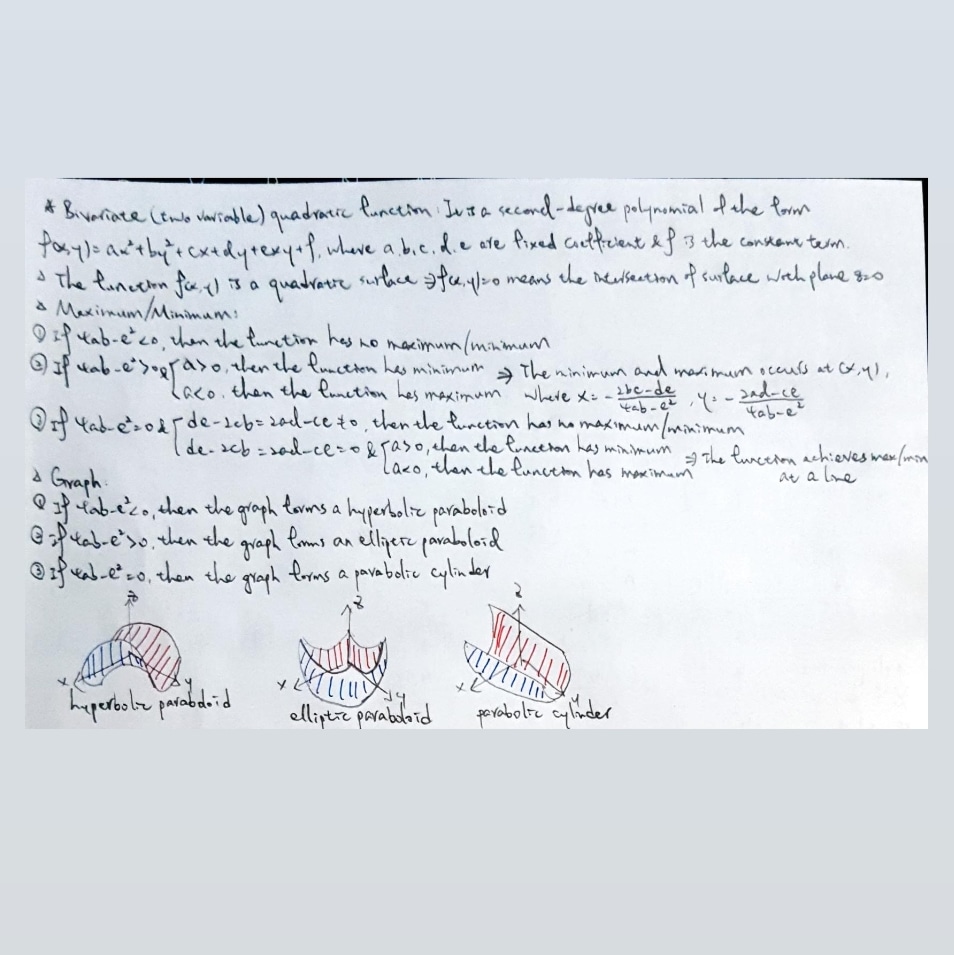 * Bivariate (two variable) quadratic function: It is a second-degree polynomial of the form
f(x,y)=ax²+by²+cx+dy+exy+f, where a.b.c.d.e are fixed coefficient & f is the constant term.
△ The function f(x,y) is a quadratic surface ⇒ f(x,y)=0 means the intersection of surface with plane z=0
△ Maximum/Minimum:
① If 4ab-e²<0, then the function has no maximum/minimum
② If 4ab-e²>0 & { a>0, then the function has minimum ⇒ The minimum and maximum occurs at (x,y),
a<0, then the function has maximum where x = - (2bc-de)/(4ab-e²), y = - (2ad-ce)/(4ab-e²)
③ If 4ab-e²=0 & { de-2cb=2ad-ce≠0, then the function has no maximum/minimum
de-2cb=2ad-ce=0 & { a>0, then the function has minimum ⇒ The function achieves max/min
a<0, then the function has maximum at a line
△ Graph:
① If 4ab-e²<0, then the graph forms a hyperbolic paraboloid
② If 4ab-e²>0, then the graph forms an elliptic paraboloid
③ If 4ab-e²=0, then the graph forms a parabolic cylinder
z z z
x y x y x y
hyperbolic paraboloid elliptic paraboloid parabolic cylinder